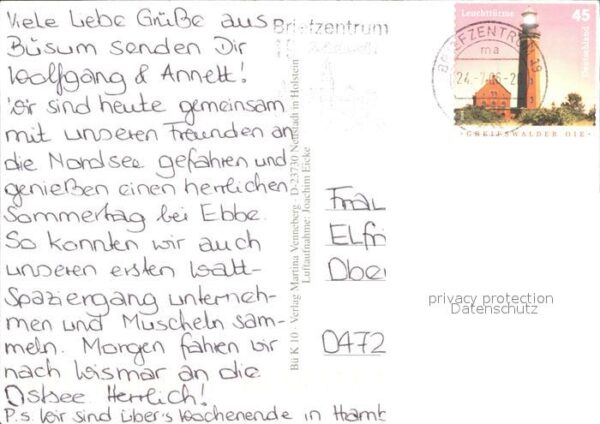 Viele Liebe Grüße aus
Büsum senden Dir
Wolfgang & Annett!
Wir sind heute gemeinsam
mit unseren Freunden an
die Nordsee gefahren und
genießen einen herrlichen
Sommertag bei Ebbe.
So konnten wir auch
unseren ersten Watt-
Spaziergang unterneh-
men und Muscheln sam-
meln. Morgen fahren wir
nach Wismar an die
Ostsee Herrlich!
P.s. Wir sind über's Wochenende in Hamb
Bü K 10 · Verlag Martina Venneberg · D-23730 Neustadt in Holstein
Luftaufnahme: Joachim Eicke
Briefzentrum
19
BRIEFZENTRUM 19
ma
24.-7.06-20
Leuchttürme 45
Deutschland
GREIFSWALDER OIE
Frau
Elfri
Ober
0472
privacy protection
Datenschutz